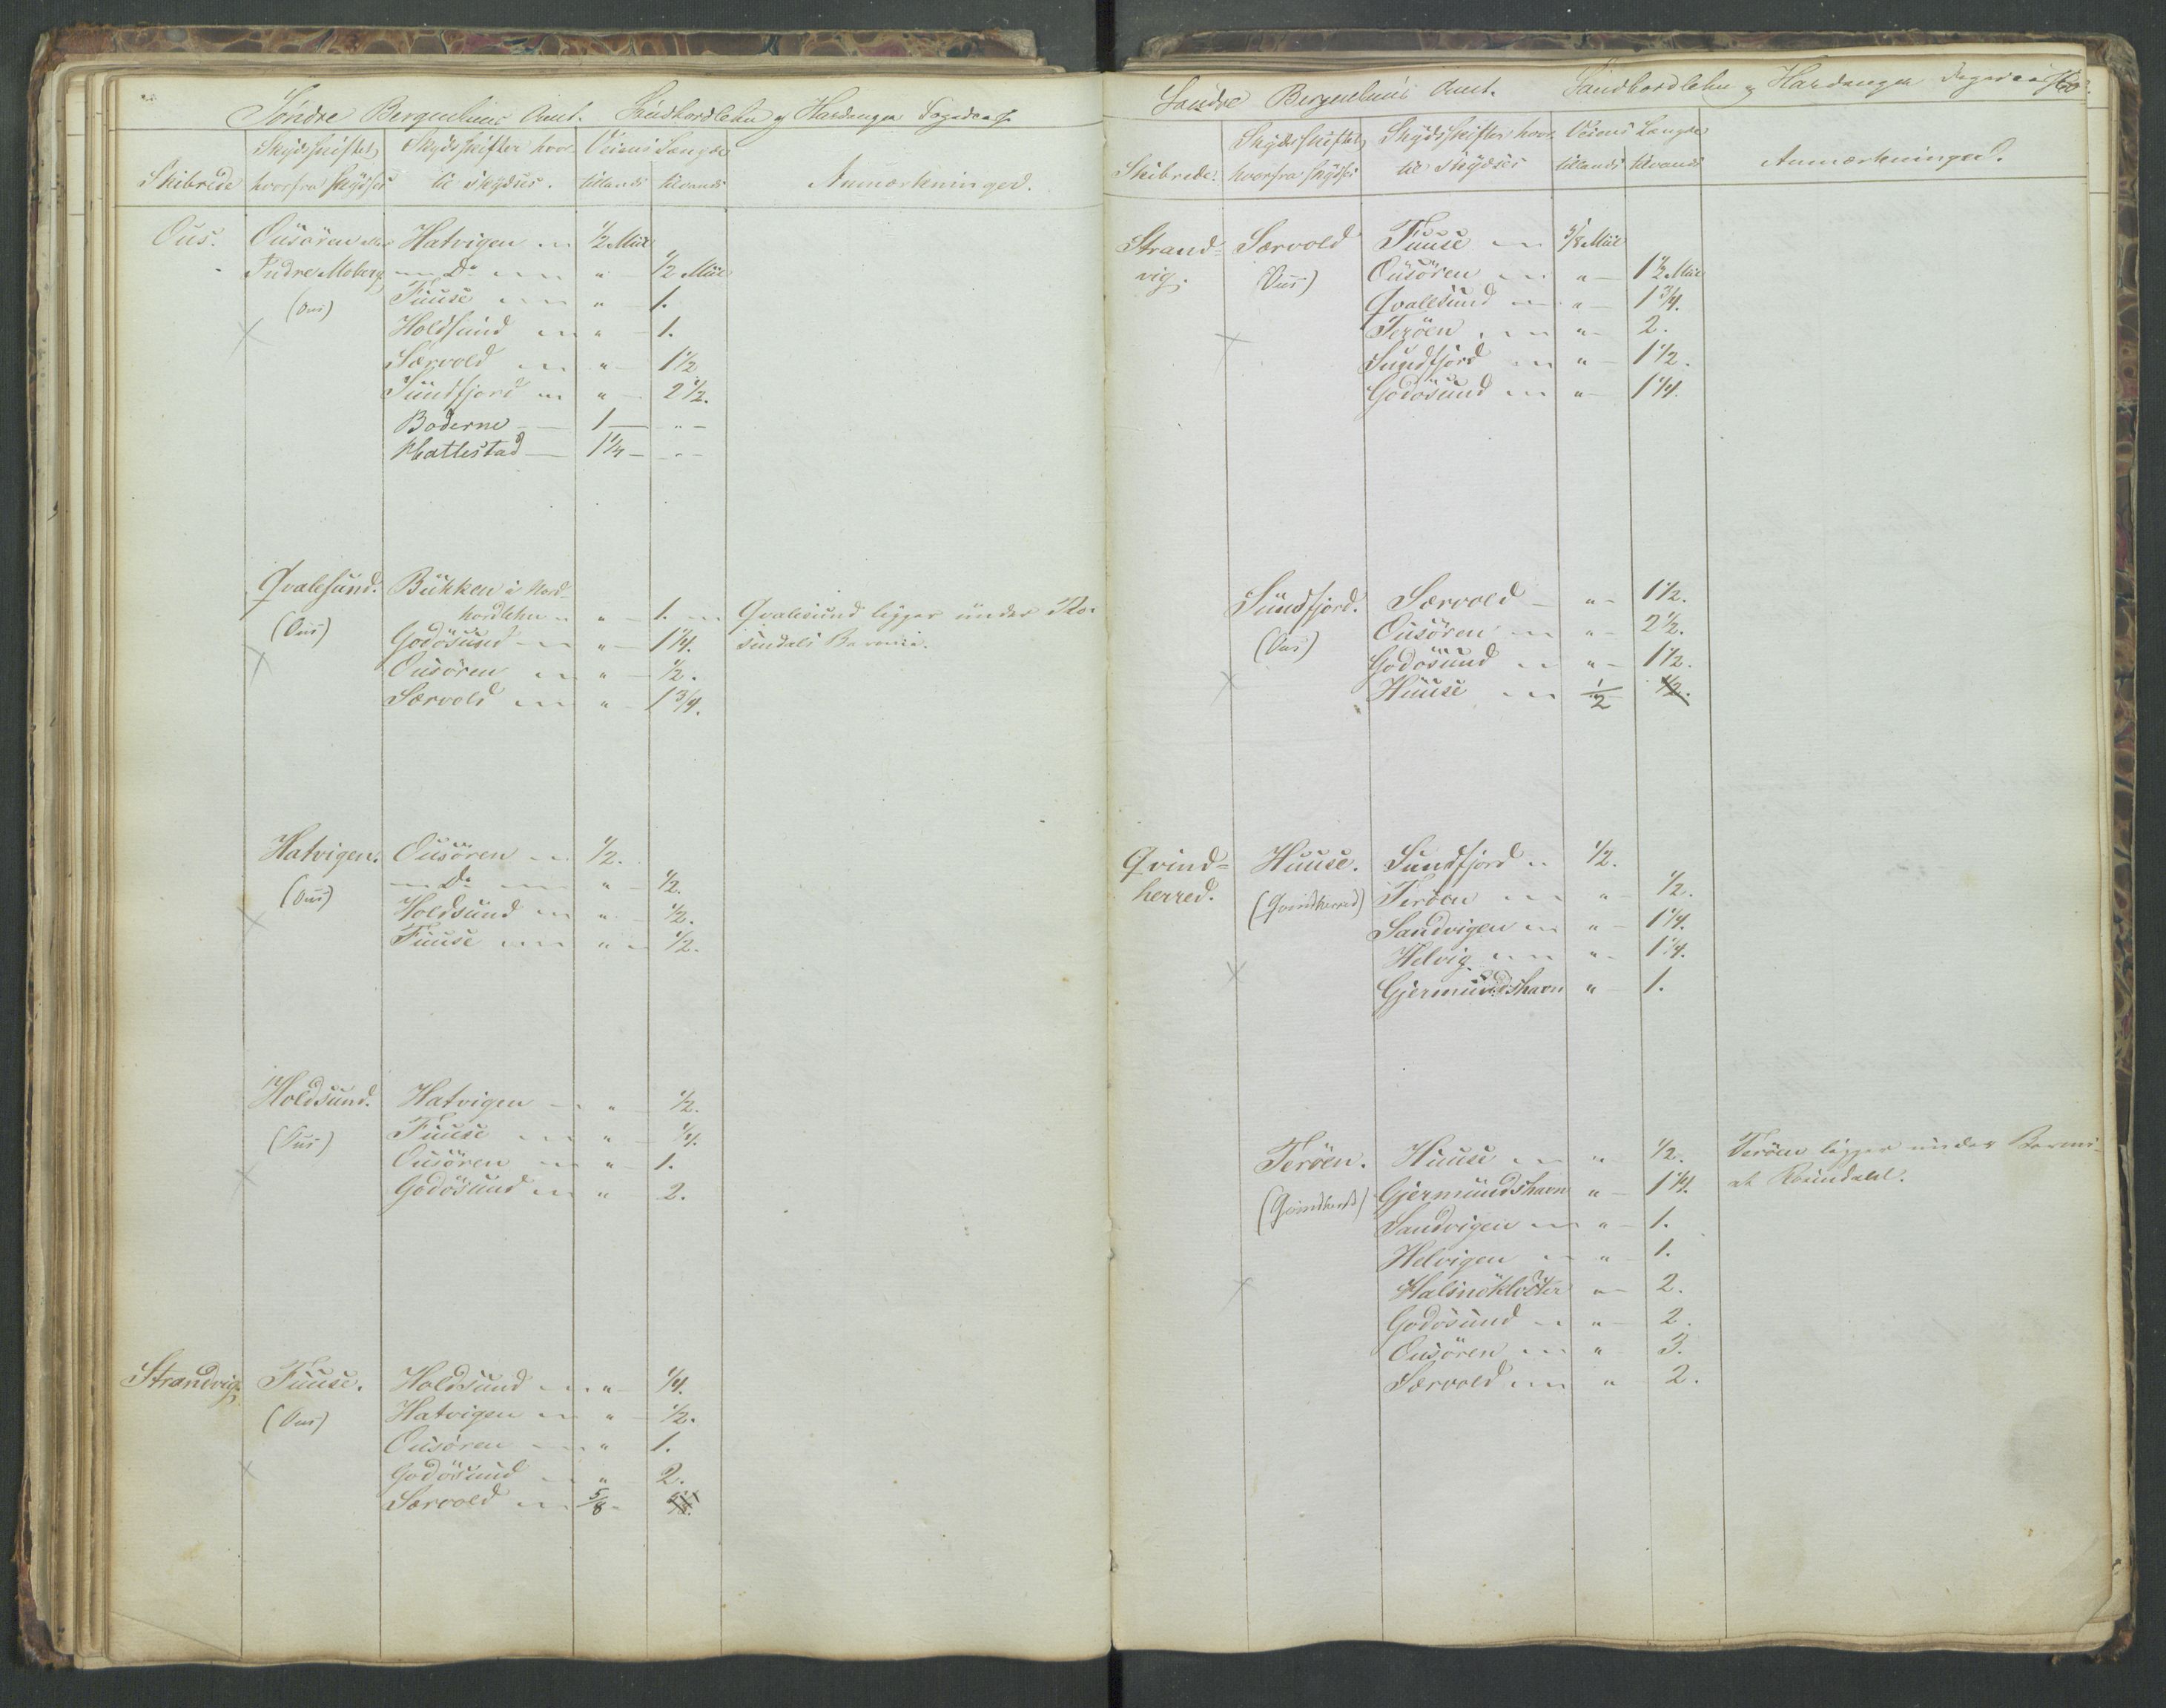 Søndre Bergenhuus Amt. Søndhordlehn og Hardanger Fogderi
Skibrede
Skydsskiftet, hvorfra skydses
Skydsskifter hvor- til skydses.
Veiens Længde
tillands tilvands
Anmærkninger.
Ous. Ousören eller Hatvigen 1/2 Miil
Indre Moberg Do " 1/2 Miil
(Ous) Fuuse " 1.
Holdsund " 1.
Særvold " 1 1/2
Sundfjord " 2 1/2.
Boderne 1 "
Hattestad 1 1/4 "
Qvalesund. Bukken i Nord-
hordlehn " 1. Qvalesund ligger under Ro-
(Ous) Godösund " 1 1/4. sendals Baronie.
Ousören " 1/2.
Særvold " 1 3/4.
Hatvigen. Ousören 1/2.
(Ous) Do " 1/2.
Holdsund " 1/2.
Fuuse " 1/2.
Holdsund. Hatvigen " 1/2.
(Ous) Fuuse " 1/4.
Ousören " 1.
Godösund " 2.
Strandvig. Fuuse. Holdsund " 1/4.
(Ous) Hatvigen " 1/2.
Ousören " 1.
Godösund " 2.
Særvold 5/8
Søndre Bergenhuus Amt. Søndhordlehn og Hardanger Fogderi
Skibrede.
Skydsskiftet, hvorfra skydses
Skydsskifter hvor- til skydses
Veiens Længde
tillands tilvands
Anmærkninger.
Strand- Særvold Fuuse 5/8 Miil
vig. (Ous) Ousören " 1 1/2 Miil
Qvalesund " 1 3/4.
Teröen " 2.
Sundfjord " 1 1/2.
Godösund " 1 1/4.
Sundfjord. Særvold " 1 1/2.
(Ous) Ousören " 2 1/2.
Godösund " 1 1/2.
Huuse 1/2 1/2.
Qvind- Huuse. Sundfjord 1/2.
herred. (Qvindherred) Teröen " 1/2.
Sandvigen " 1 1/4.
Helvig " 1 1/4.
Gjermundshavn " 1.
Teröen. Huuse " 1/2. Teröen ligger under Baroni-
(Qvindherred) Gjermundshavn " 1 1/4. et Rosendahl.
Sandvigen " 1.
Helvigen " 1.
Halsnökloster " 2.
Godösund " 2.
Ousören " 3.
Særvold " 2.